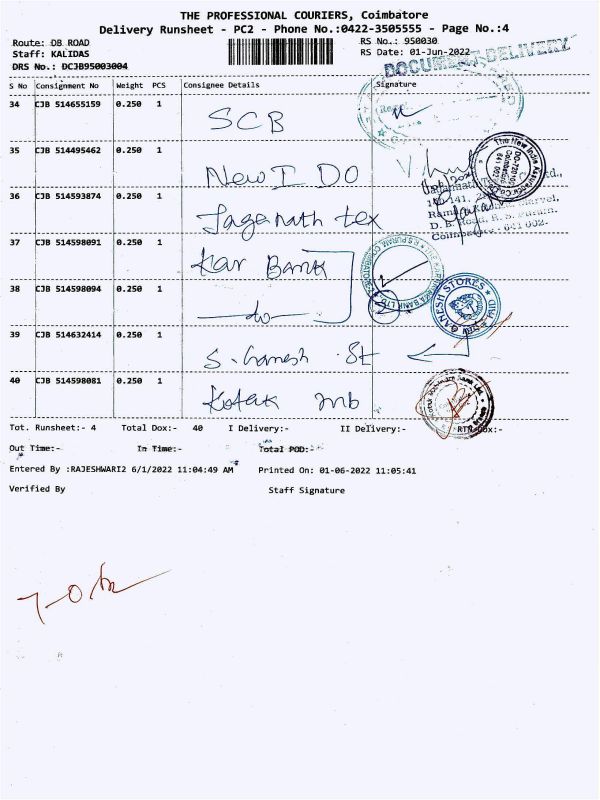 THE PROFESSIONAL COURIERS, Coimbatore
Delivery Runsheet - PC2 - Phone No.:0422-3505555 - Page No.:4
Route: DB ROAD RS No.: 950030
Staff: KALIDAS RS Date: 01-Jun-2022
DRS No.: DCJB95003004
DOCUMENT DELIVERY
S No Consignment No Weight PCS Consignee Details Signature
34 CJB 514655159 0.250 1 SCB
35 CJB 514495462 0.250 1 New I DO
The New India Assurance Co. Ltd.
36 CJB 514593874 0.250 1 Jaganath tex
D. B. Road, R. S. Puram,
Coimbatore - 641 002.
37 CJB 514598091 0.250 1 Kar Bank
38 CJB 514598094 0.250 1 -do-
GANESH STORES
39 CJB 514632414 0.250 1 S. Ganesh St
40 CJB 514598081 0.250 1 Kotak mb
Tot. Runsheet:- 4 Total Dox:- 40 I Delivery:- II Delivery:- RTN Dox:-
Out Time:- In Time:- Total POD:-
Entered By :RAJESHWARI2 6/1/2022 11:04:49 AM Printed On: 01-06-2022 11:05:41
Verified By Staff Signature